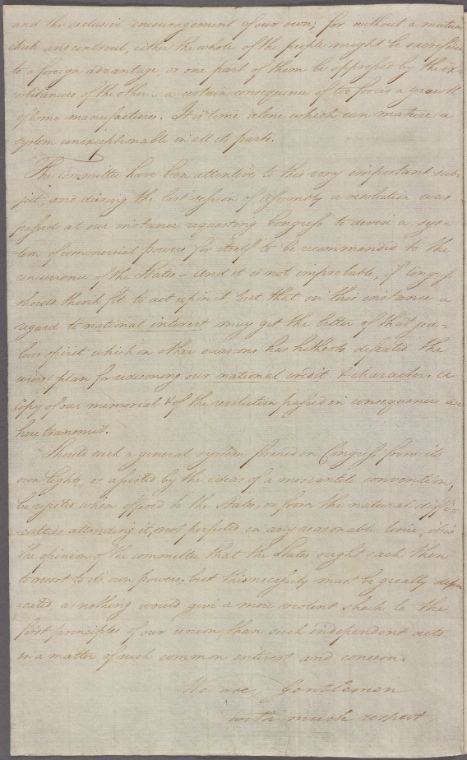 and the exclusive encouragement of our own; for without a mature
check and controul, either the whole of the people might be sacrificed
to a foreign advantage, or one part of them be oppressed by the
of the other a certain consequence of too forced a growth
of home manufactures. It is time alone which can mature a
system unexceptionable in all its parts.
The Committee have been attentive to this very important sub-
ject, and during the last session of Assembly a resolution was
passed at our instance requesting Congress to devise a sys-
tem of commercial powers for itself to be recommended to the
concurrence of the States - And it is not improbable, if Congress
should think fit to act upon it, but that in this instance a
regard to national interest may get the better of that
spirit which on other occasions has hitherto defeated the
plan for redeeming our national credit & character. A
copy of our memorial & of the resolution passed in consequence we
here transmit.
Should such a general system formed in Congress from its
own lights, or assisted by the ideas of a mercantile convention,
be rejected when offered to the States, or from the natural diffi-
culties attending it, not perfected in any reasonable time, it is
the opinion of the committee that the States ought each then
to resort to its own powers. but this necessity must be greatly depre-
cated as nothing would give a more violent shock to the
first principles of our union, than such independent acts
in a matter of such common interest and concern.
We are, Gentlemen
with much respect